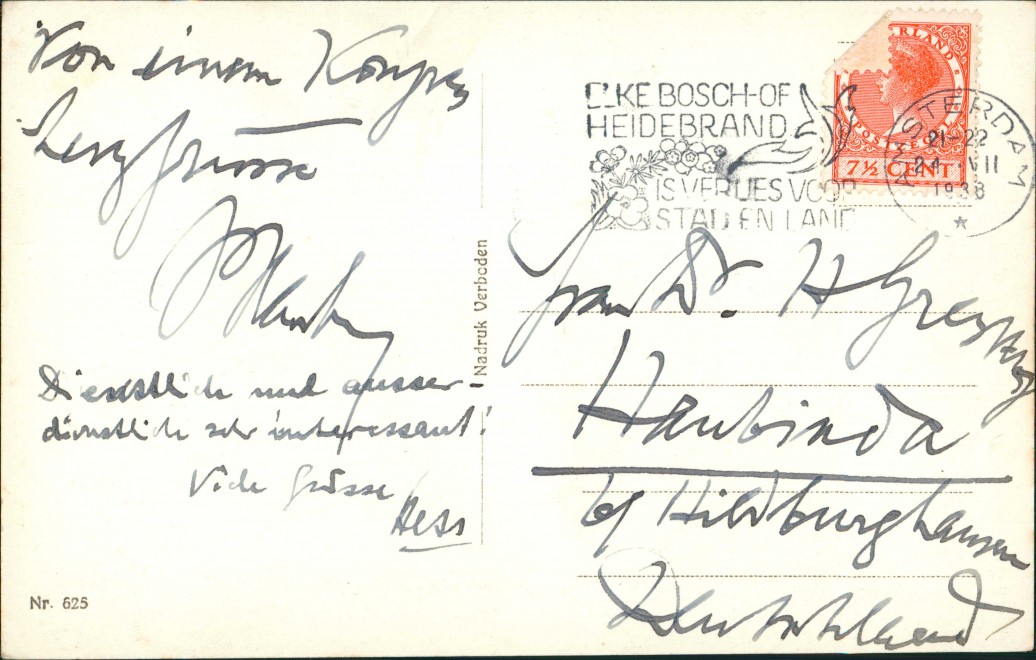 Von einem Kongress
Herzgrüsse
Dienstlich und ausser-
dienstlich sehr interessant!
Viele Grüsse
Hess
Nr. 625
Nadruk Verboden
ELKE BOSCH-OF
HEIDEBRAND
IS VERLIES VOOR
STAD EN LAND
NEDERLAND
7½ CENT
AMSTERDAM
21-22
24 VII
1938
Frau Dr. H
Haubinda
b/ Hildburghausen
Deutschland